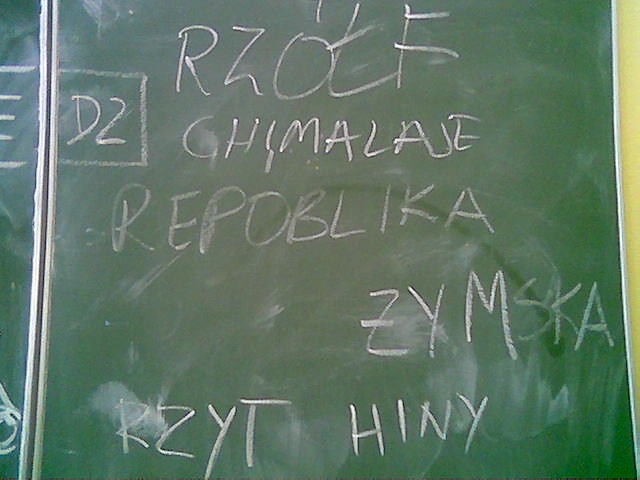 RZÓŁF
DZ
CHIMALAJE
REPOBLIKA
ŻYMSKA
RZYT HINY